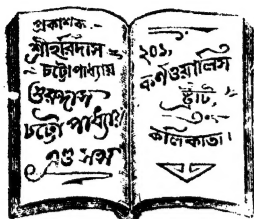 প্রকাশক:-
শ্রীহরিদাস
চট্টোপাধ্যায়
গুরুদাস
চট্টোপাধ্যায়
এণ্ড সন্স
২০১,
কর্নওয়ালিস
ষ্ট্রীট,
কলিকাতা।